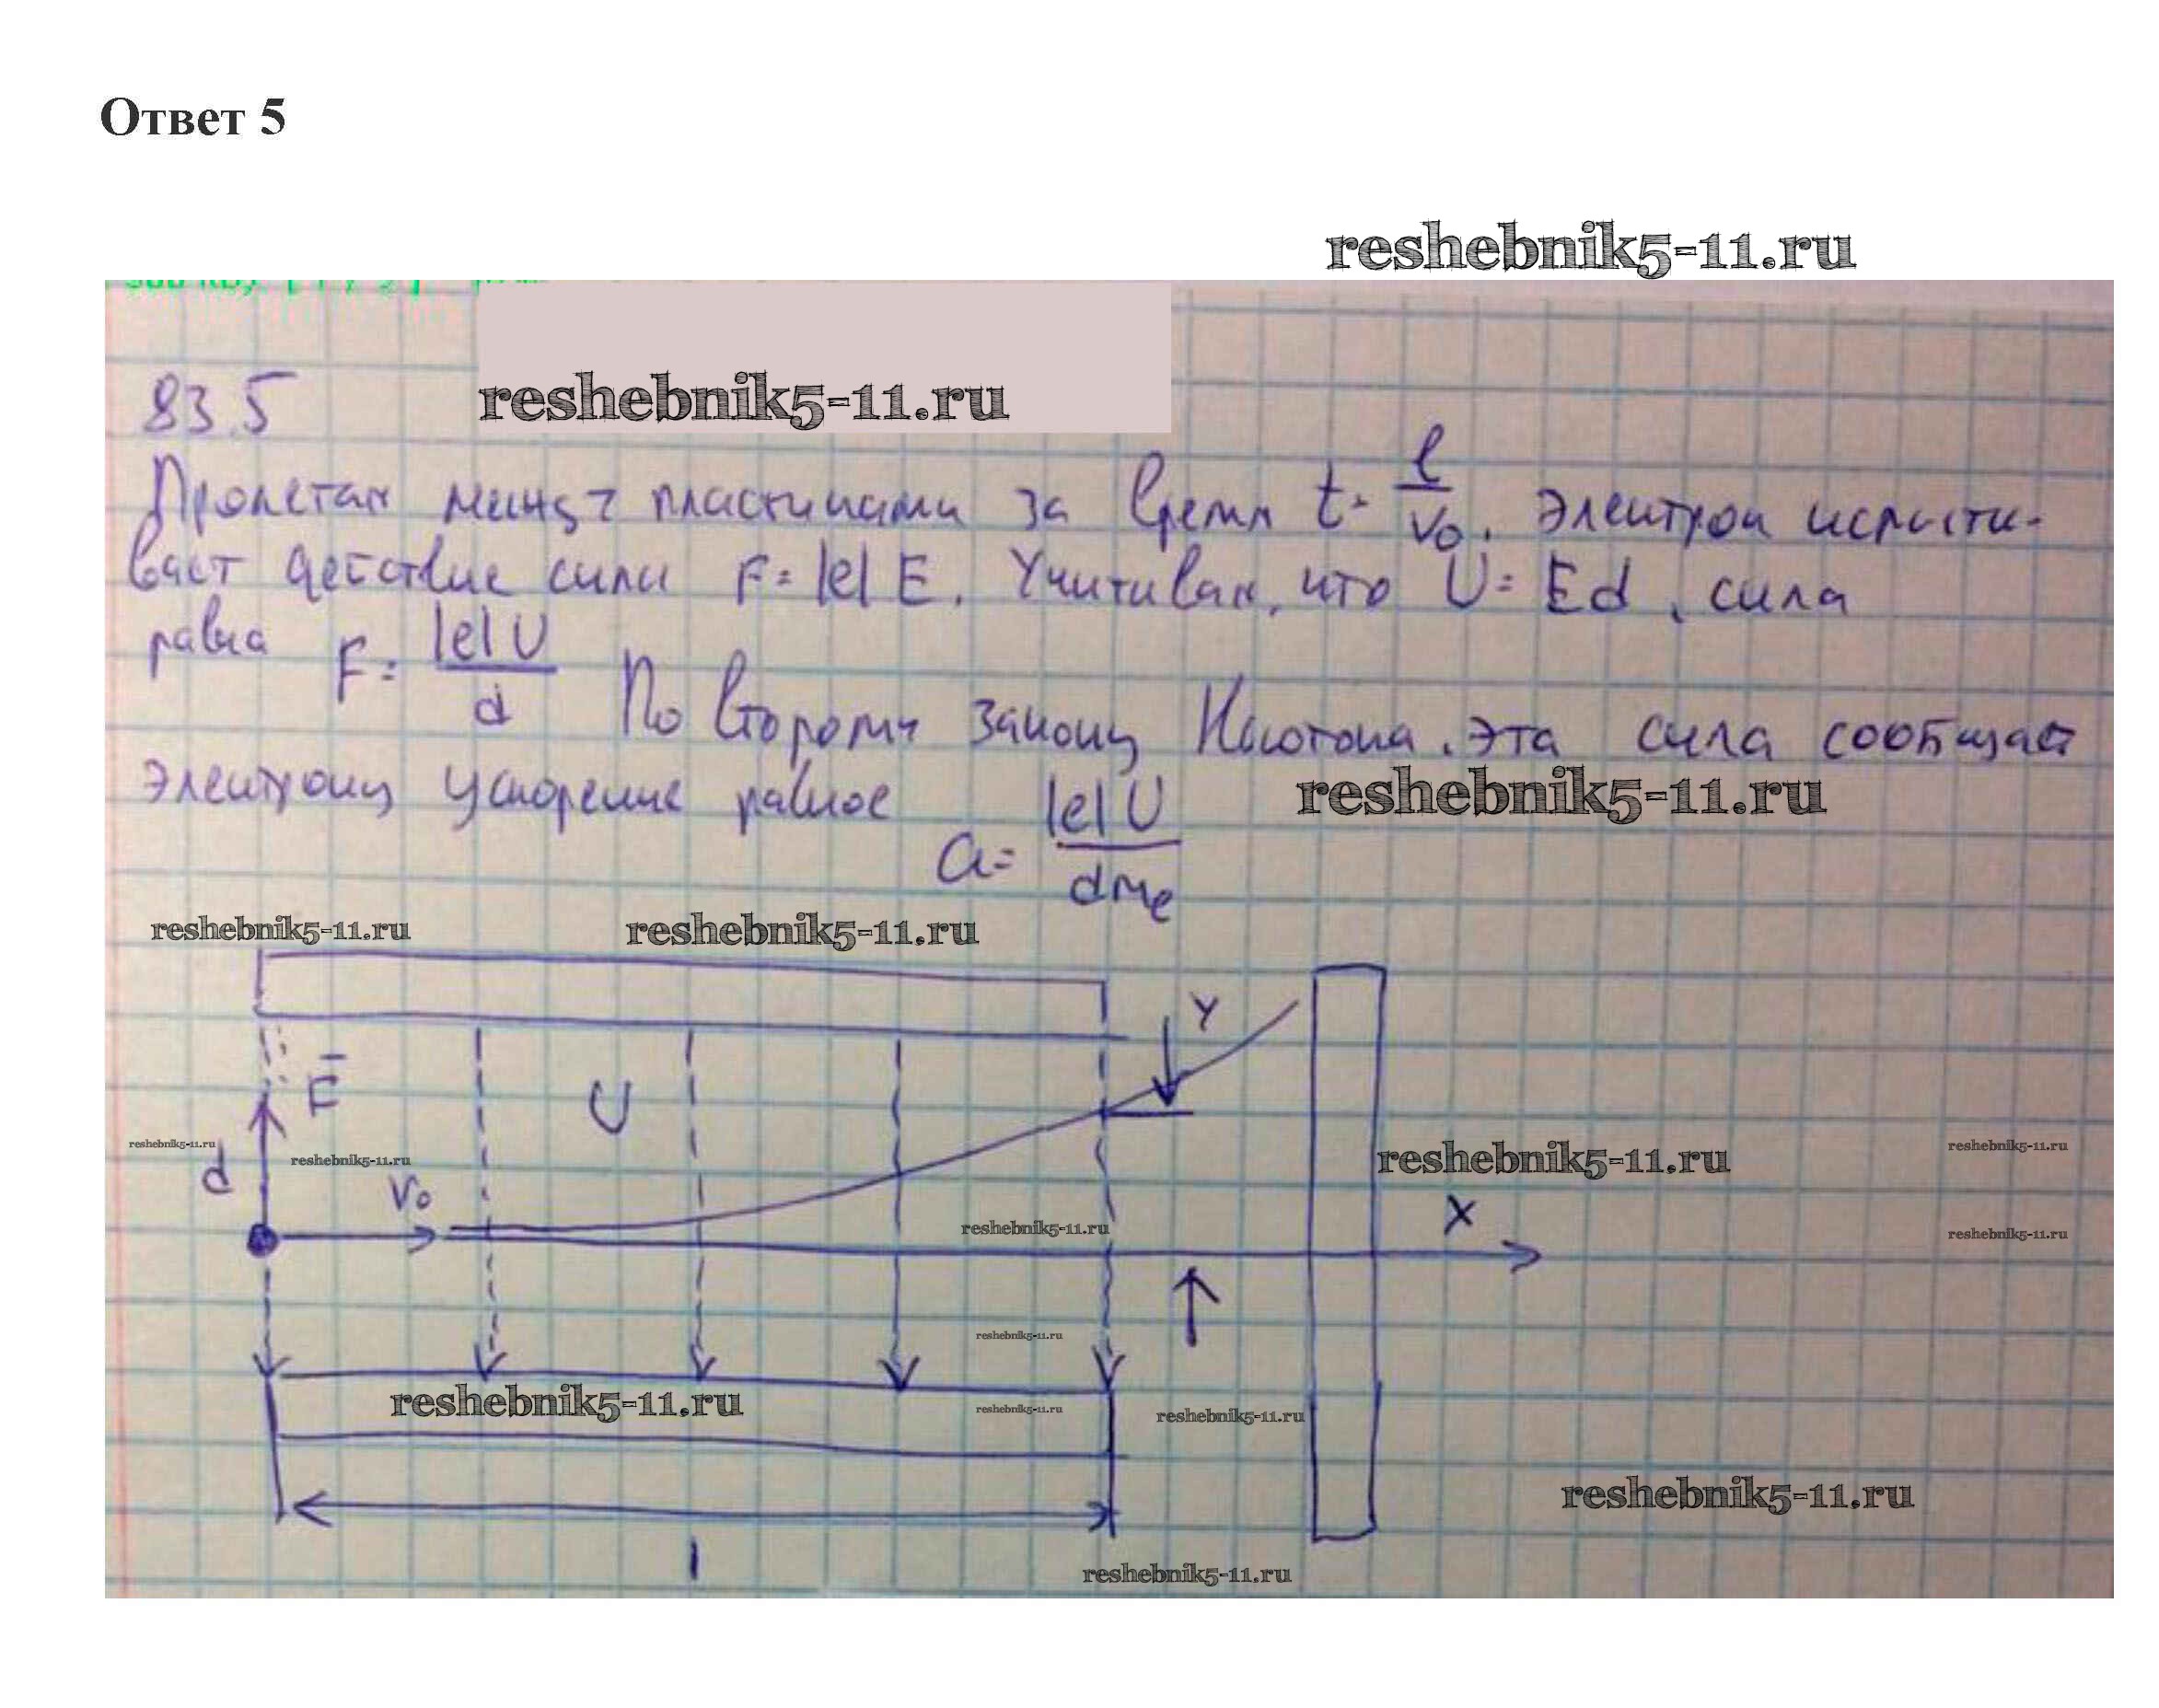 Ответ 5
reshebnik5-11.ru
reshebnik5-11.ru
83.5
Пролетая между пластинами за время t = l/v₀. Электрон испыты-
вает действие силы F = |e| E. Учитывая, что U = Ed, сила
равна F = |e| U / d По второму закону Ньютона, эта сила сообщает
электрону ускорение равное a = |e| U / dmₑ
reshebnik5-11.ru
reshebnik5-11.ru reshebnik5-11.ru
Y
F
U
reshebnik5-11.ru reshebnik5-11.ru reshebnik5-11.ru reshebnik5-11.ru
d v₀
X
reshebnik5-11.ru reshebnik5-11.ru
reshebnik5-11.ru
reshebnik5-11.ru reshebnik5-11.ru reshebnik5-11.ru
reshebnik5-11.ru
l
reshebnik5-11.ru